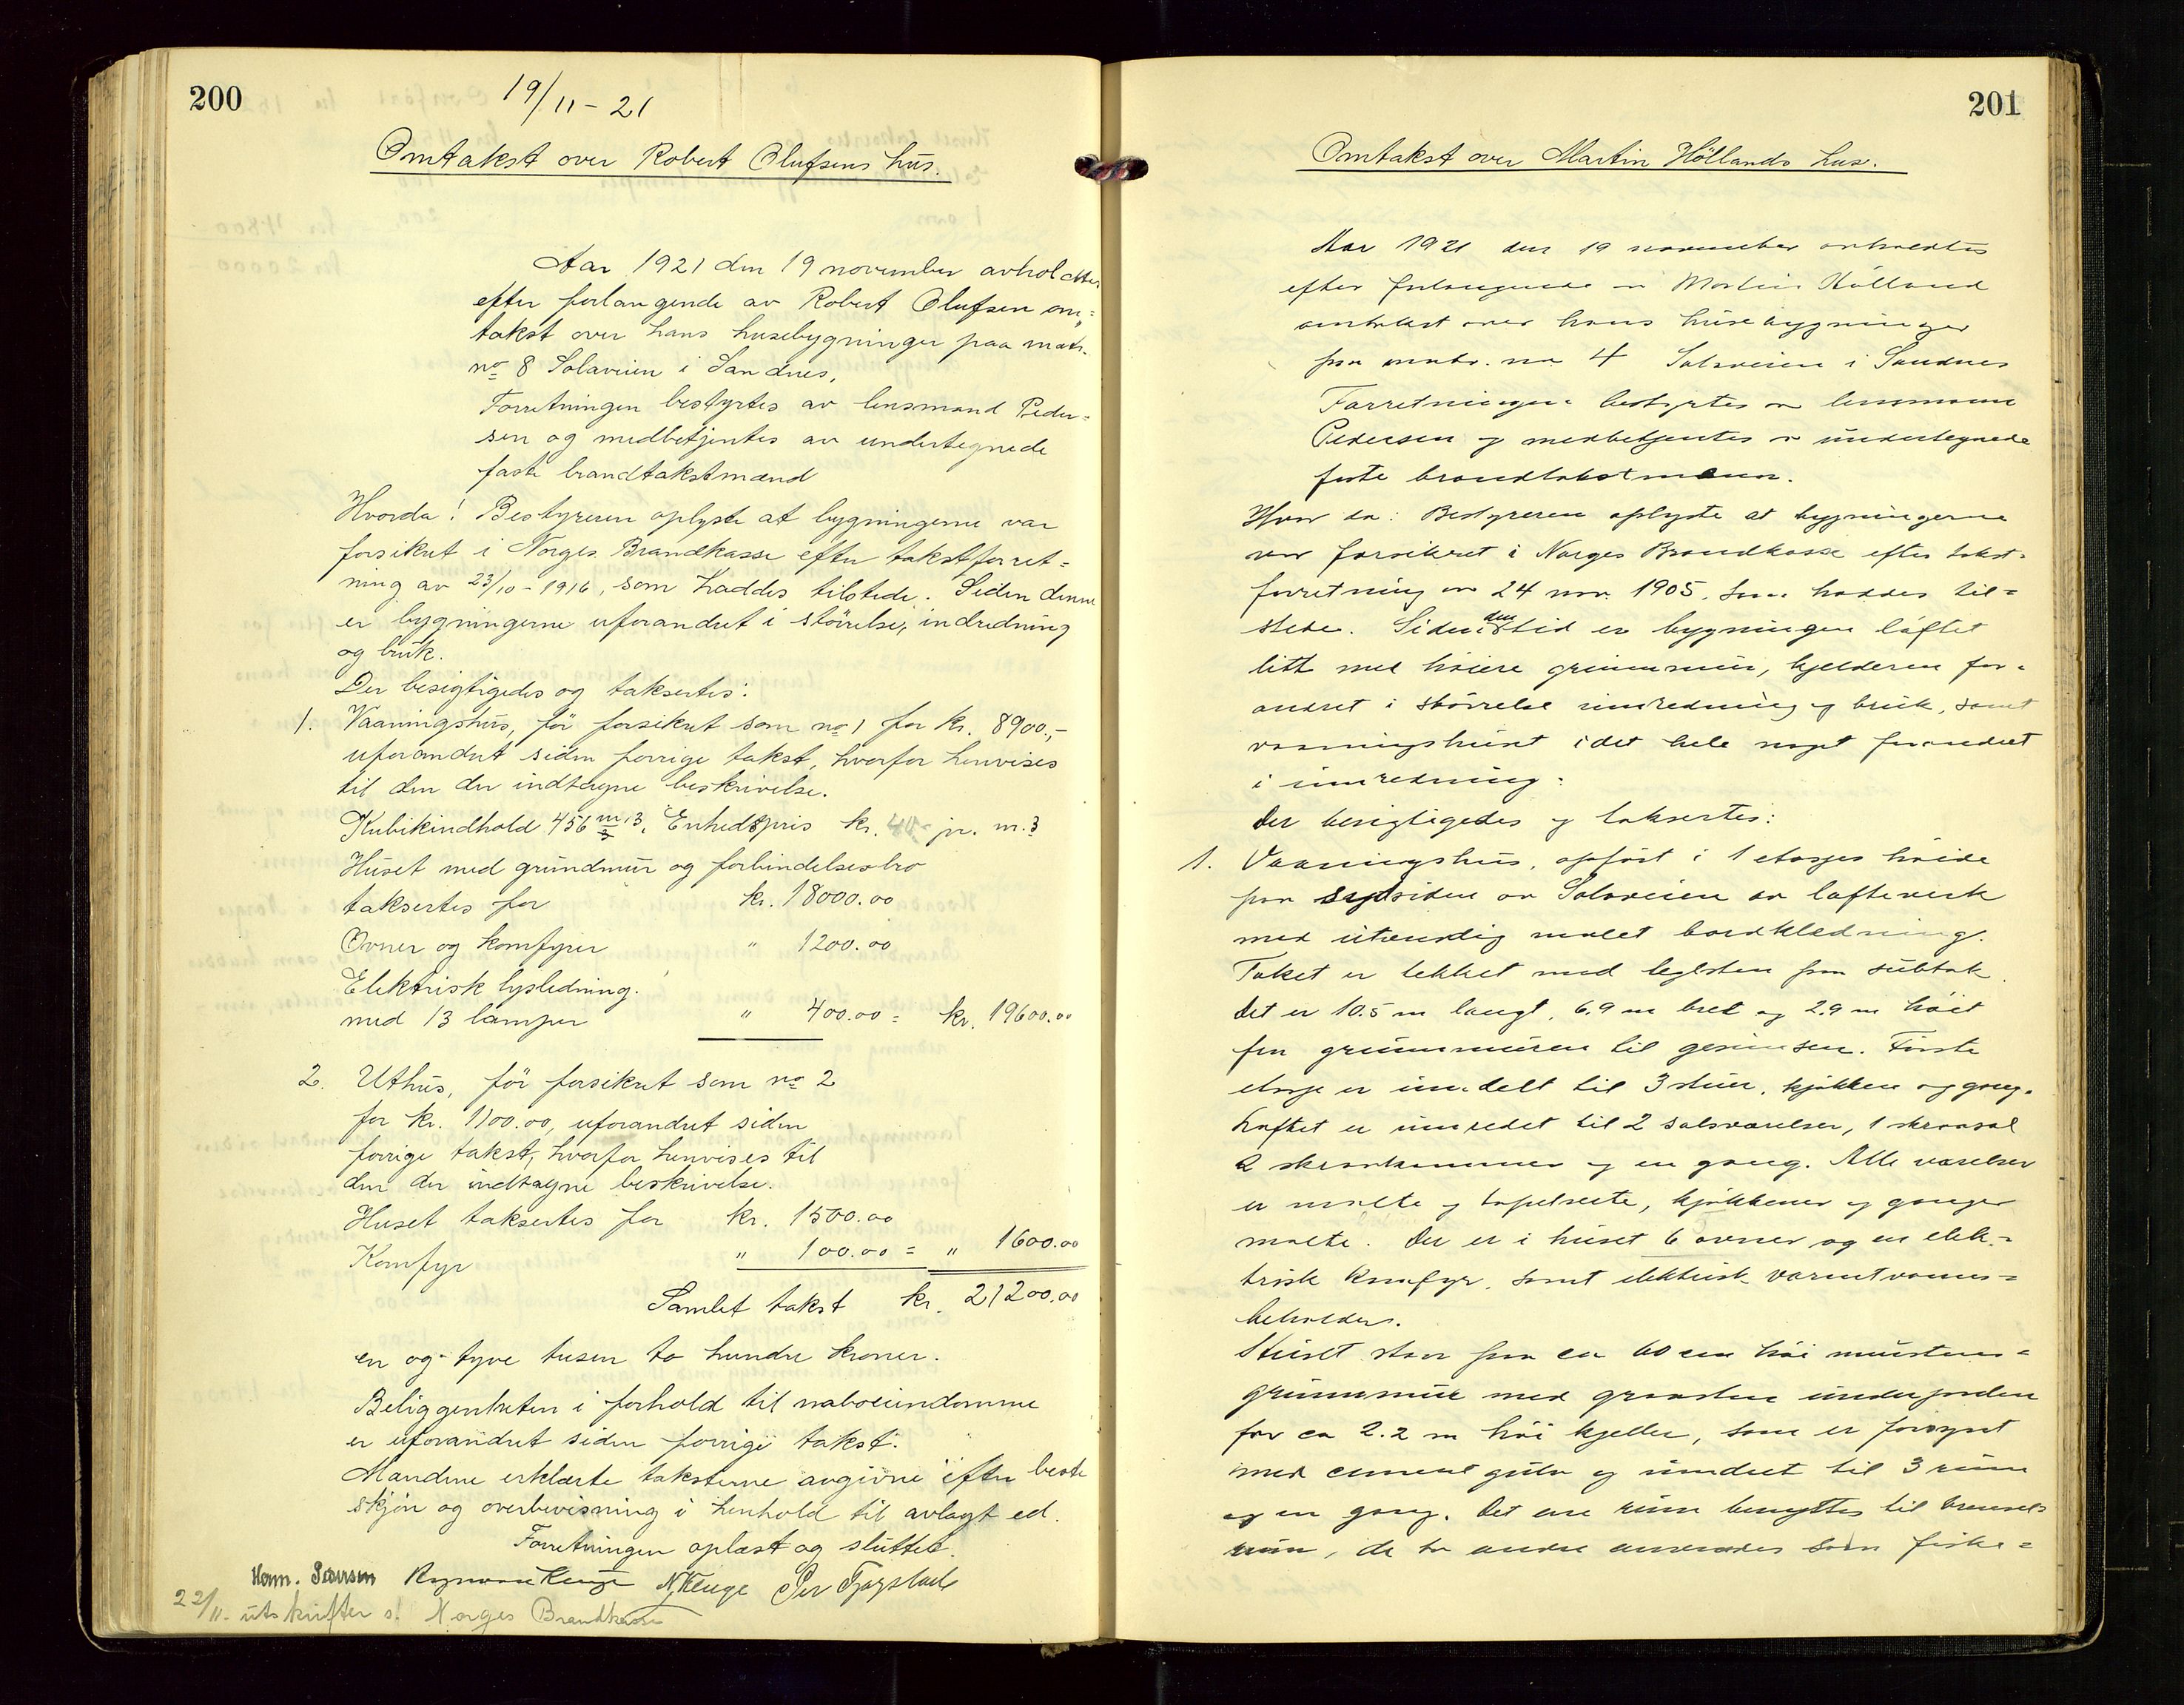 200
19/11-21
Omtakst over Robert Olufsens hus.
Aar 1921 den 19 november avholdtes
efter forlangende av Robert Olufsen om=
takst over hans husebygninger paa matr.
no 8 Solaveien i Sandnes.
Forretningen bestyrtes av lensmand Peder=
sen og medbetjentes av undertegnede
faste brandtakstmænd
Hvorda: Bestyreren oplyste at bygningerne var
forsikret i Norges Brandkasse efter takstforret=
ning av 23/10-1916, som haddes tilstede. Siden denne
er bygningerne uforandret i størrelse, indredning
og bruk.
Der besigtigedes og taksertes:
1. Vaaningshus, før forsikret som no 1 for kr. 8900,-
uforandret siden forrige takst, hvorfor henvises
til den der indtagne beskrivelse.
Kubikindhold 456 m3. Enhedspris kr. 40- pr. m.3
Huset med grundmur og forbindelsesbro
taksertes for kr. 18000.00
Ovner og komfyrer " 1200.00
Elektrisk lysledning.
med 13 lamper " 400.00 = kr. 19600.00
2. Uthus, før forsikret som no 2
for kr. 1100.00, uforandret siden
forrige takst, hvorfor henvises til
den der indtagne beskrivelse.
Huset taksertes for kr. 1500.00
Komfyr " 100.00 = " 1600.00
Samlet takst kr. 21200.00
en og tyve tusen to hundre kroner.
Beliggenheten i forhold til naboeiendomme
er uforandret siden forrige takst.
Mændene erklærte taksterne avgivne efter beste
skjøn og overbevisning i henhold til avlagt ed.
Forretningen oplæst og sluttet.
N. Kluge Per Fjogstad
22/11. utskrifter s. Norges Brandkasse
201
Omtakst over Martin Höllands hus.
Aar 1921 den 19 november avholdtes
efter forlangende av Martin Hölland
omtakst over hans husebygninger
paa matr. no 4 Solaveien i Sandnes
Forretningen bestyrtes av lensmann
Pedersen og medbetjentes av undertegnede
faste brandtakstmenn.
Hvor da: Bestyreren oplyste at bygningerne
var forsikret i Norges Brandkasse efter takst-
forretning av 24 nov. 1905. som haddes til=
stede. Siden den tid er bygningen løftet
litt med høiere grunnmur, kjelderen for-
andret i størrelse innredning og bruk, samt
vaaningshuset i det hele noget forandret
i innredning:
Der besigtigedes og taksertes:
1. Vaaningshus, opført i 1 etasjes høide
paa sydsiden av Solaveien av lafteverk
med utvendig malet bordklædning.
Taket er tekket med teglsten paa subtak.
Det er 10.5 m langt, 6.9 m bret og 2.9 m høit
fra grunnmuren til gesimsen. Første
etasje er inndelt til 3 stuer, kjøkken og gang.
Loftet er innredet til 2 salsværelser, 1 skraasal
2 skraakammer og en gang. Alle værelser
er malte og tapetserte, kjøkkener og ganger
malte. Der er i huset 6 ovner og en elek=
trisk komfyr, samt elektrisk varmtvanns=
beholder.
Huset staar paa ca 60 cm høi mursteins=
grunnmur med graasten under jorden
for ca 2.2 m høi kjeller, som er forsynt
med cementgulv og inndelt til 3 rum
og en gang. Det ene rum benyttes til brensel-
rum, de to andre anvendes som fiske=